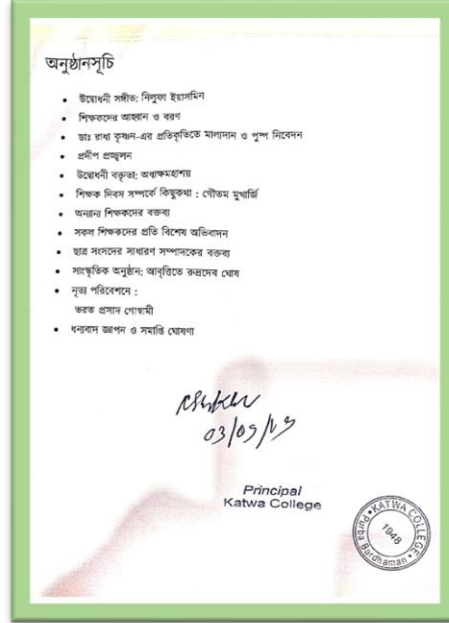 অনুষ্ঠানসূচি
• উদ্বোধনী সঙ্গীত: নিলুফা ইয়াসমিন
• শিক্ষকদের আহ্বান ও বরণ
• ডাঃ রাধা কৃষ্ণন-এর প্রতিকৃতিতে মাল্যদান ও পুষ্প নিবেদন
• প্রদীপ প্রজ্জ্বলন
• উদ্বোধনী বক্তৃতা: অধ্যক্ষমহাশয়
• শিক্ষক দিবস সম্পর্কে কিছুকথা : গৌতম মুখার্জি
• অন্যান্য শিক্ষকদের বক্তব্য
• সকল শিক্ষকদের প্রতি বিশেষ অভিবাদন
• ছাত্র সংসদের সাধারণ সম্পাদকের বক্তব্য
• সাংস্কৃতিক অনুষ্ঠান: আবৃত্তিতে রুদ্রদেব ঘোষ
• নৃত্য পরিবেশনে :
ভরত প্রসাদ গোস্বামী
• ধন্যবাদ জ্ঞাপন ও সমাপ্তি ঘোষণা
Principal
Katwa College
KATWA COLLEGE
1948
Purba Bardhaman